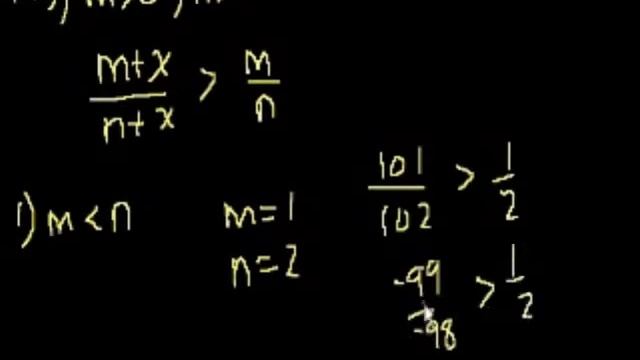 m+x/n+x > m/n
1) m < n
m=1
n=2
101/102 > 1/2
-99/-98 > 1/2